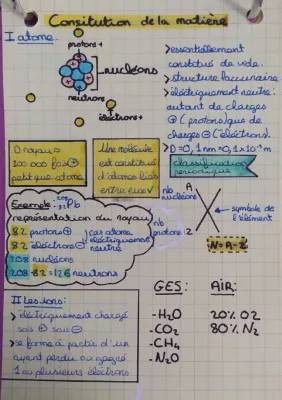 Consitution de la matière
I atome.
protons +
nucléons
neutrons
électrons +
> essentiellement
constitué de vide.
> structure lacunaire
> électriquement neutre :
autant de charges
⊕ (protons) que de
charges ⊖ (électrons).
> D = 0,1 nm = 0,1 × 10⁻⁹ m
D noyau =
100 000 fois
petit que atome
Une molécule
est constitué
d'atomes liés
entre eux
classification
périodique
Exemple : ²⁰⁸₈₂Pb
représentation du noyau
82 protons ⊕
82 électrons ⊖
car atome
électriquement
neutre
208 nucléons
208-82=126 neutrons
nb
nucléons
A
X
symbole de
l'élément
nb
protons
Z
N = A - Z
II Les ions :
> électriquement chargé
sois ⊕ sous ⊖
> se forme à partir d'un
ayant perdu ou gagné
1 ou plusieurs électrons
GES :
-H₂O
-CO₂
-CH₄
-N₂O
AIR :
20% O2
80% N₂